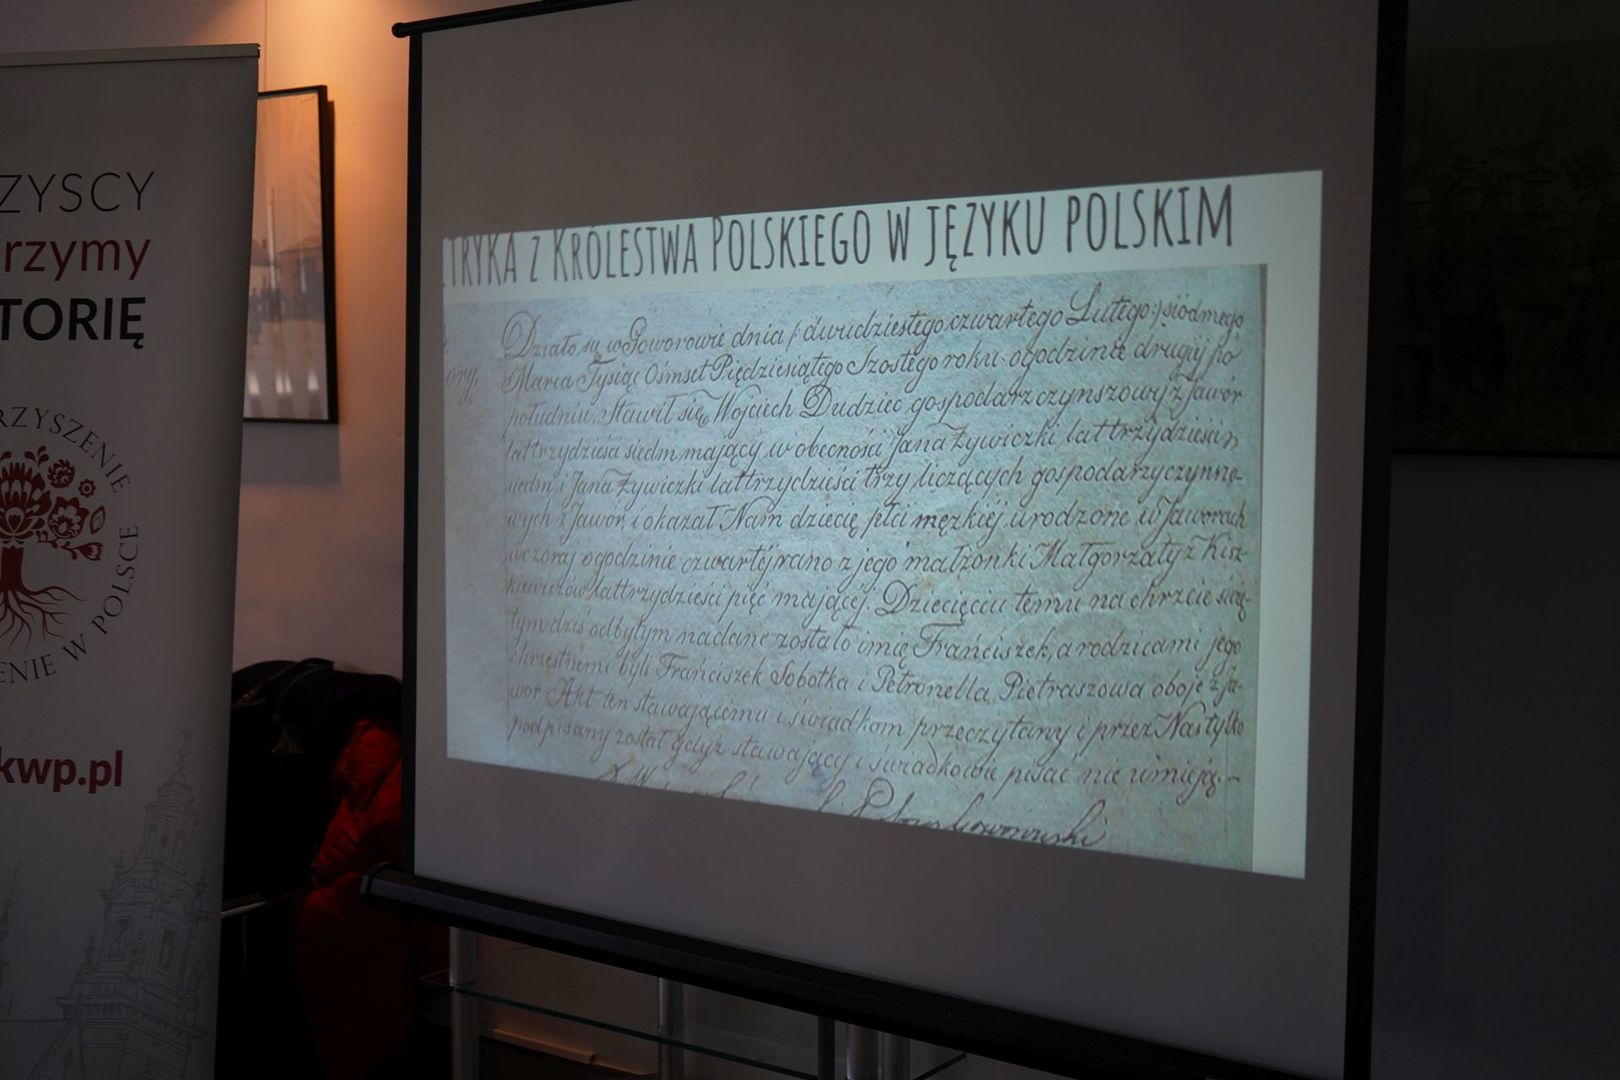 ZYSCY
rzymy
TORIĘ
RZYSZENIE
ENIE W POLSCE
kwp.pl
TRYKA Z KRÓLESTWA POLSKIEGO W JĘZYKU POLSKIM
ory.
Działo się w Goworowie dnia /: dwudziestego czwartego Lutego :/ siódmego
Marca Tysiąc Ośmset Piędziesiątego Szostego roku o godzinie drugiej po
południu. Stawił się Wojciech Dudziec gospodarz czynszowy z Jawor
lat trzydzieści siedm mający w obecności Jana Żywiczki lat trzydzieści
siedm i Jana Żywiczki lat trzydzieści trzy liczących gospodarzy czynszo-
wych z Jawor, i okazał Nam dziecię płci męzkiej urodzone w Jaworach
wczoraj o godzinie czwartéj rano z jego małżonki Małgorzaty z Kisz-
kiewiczów lat trzydzieści pięć mającej. Dziecięciu temu na chrzcie świę-
tym dziś odbytym nadane zostało imię Frańciszek, a rodzicami jego
chrzestnemi byli Frańciszek Sobotka i Petronella Pietraszowa oboje z Ja-
wor. Akt ten stawającemu i świadkom przeczytany i przez Nas tylko
podpisany został gdyż stawający i świadkowie pisać nie umieją.-